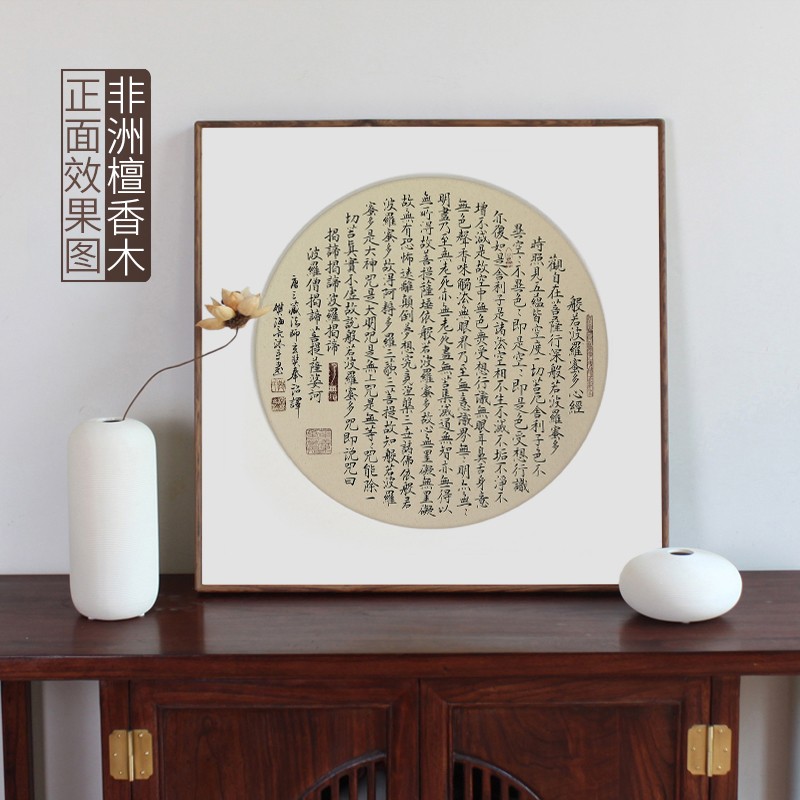 非洲檀香木
正面效果图
般若波羅蜜多心經
觀自在菩薩行深般若波羅蜜多
時照見五蘊皆空度一切苦厄舍利子色不
異空〻不異色〻即是空〻即是色受想行識
亦復如是舍利子是諸法空相不生不滅不垢不淨不
增不減是故空中無色無受想行識無眼耳鼻舌身意
無色聲香味觸法無眼界乃至無意識界無〻明亦無〻
明盡乃至無老死亦無老死盡無苦集滅道無智亦無得以
無所得故菩提薩埵依般若波羅蜜多故心無罣礙無罣礙
故無有恐怖遠離顛倒夢想究竟涅槃三世諸佛依般若
波羅蜜多故得阿耨多羅三藐三菩提故知般若波羅
蜜多是大神咒是大明咒是無上咒是無等〻咒能除一
切苦真實不虛故說般若波羅蜜多咒即說咒曰
揭諦揭諦波羅揭諦
波羅僧揭諦菩提薩婆訶
唐三藏法師玄奘奉詔譯